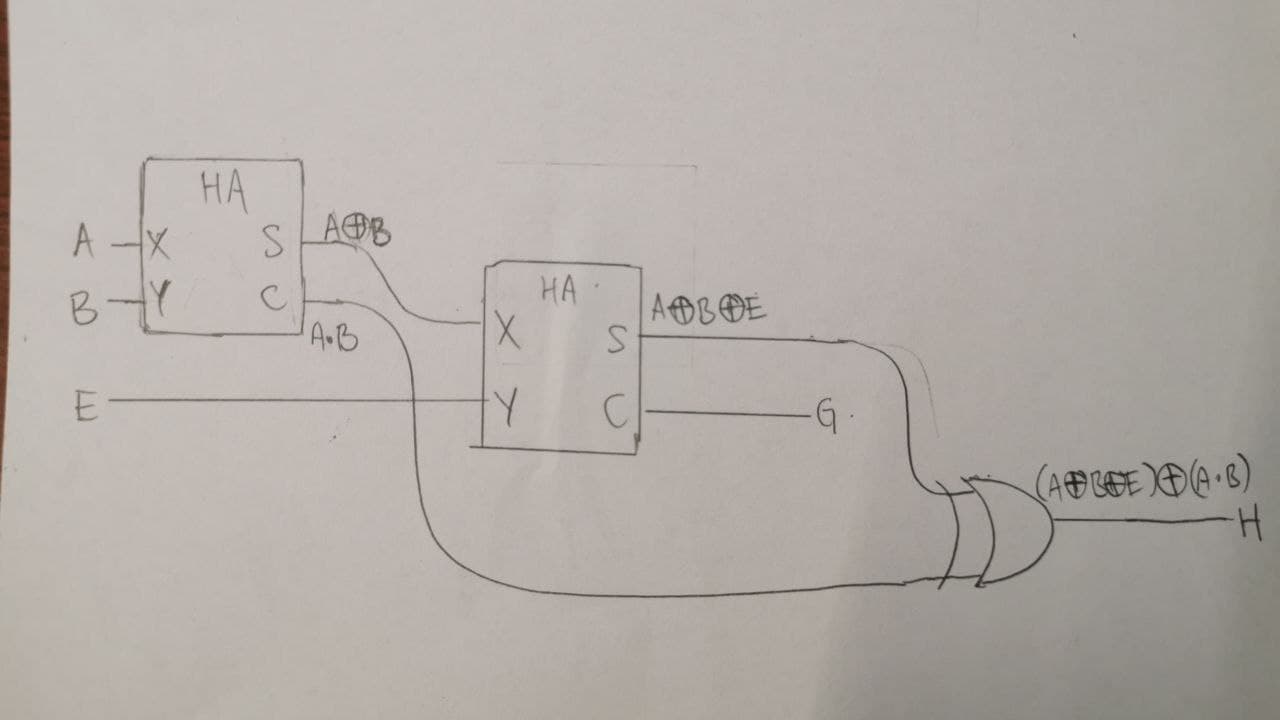 HA
A X S A⊕B
B Y C
A·B
HA
X S A⊕B⊕E
E Y C G
(A⊕B⊕E)⊕(A·B)
H